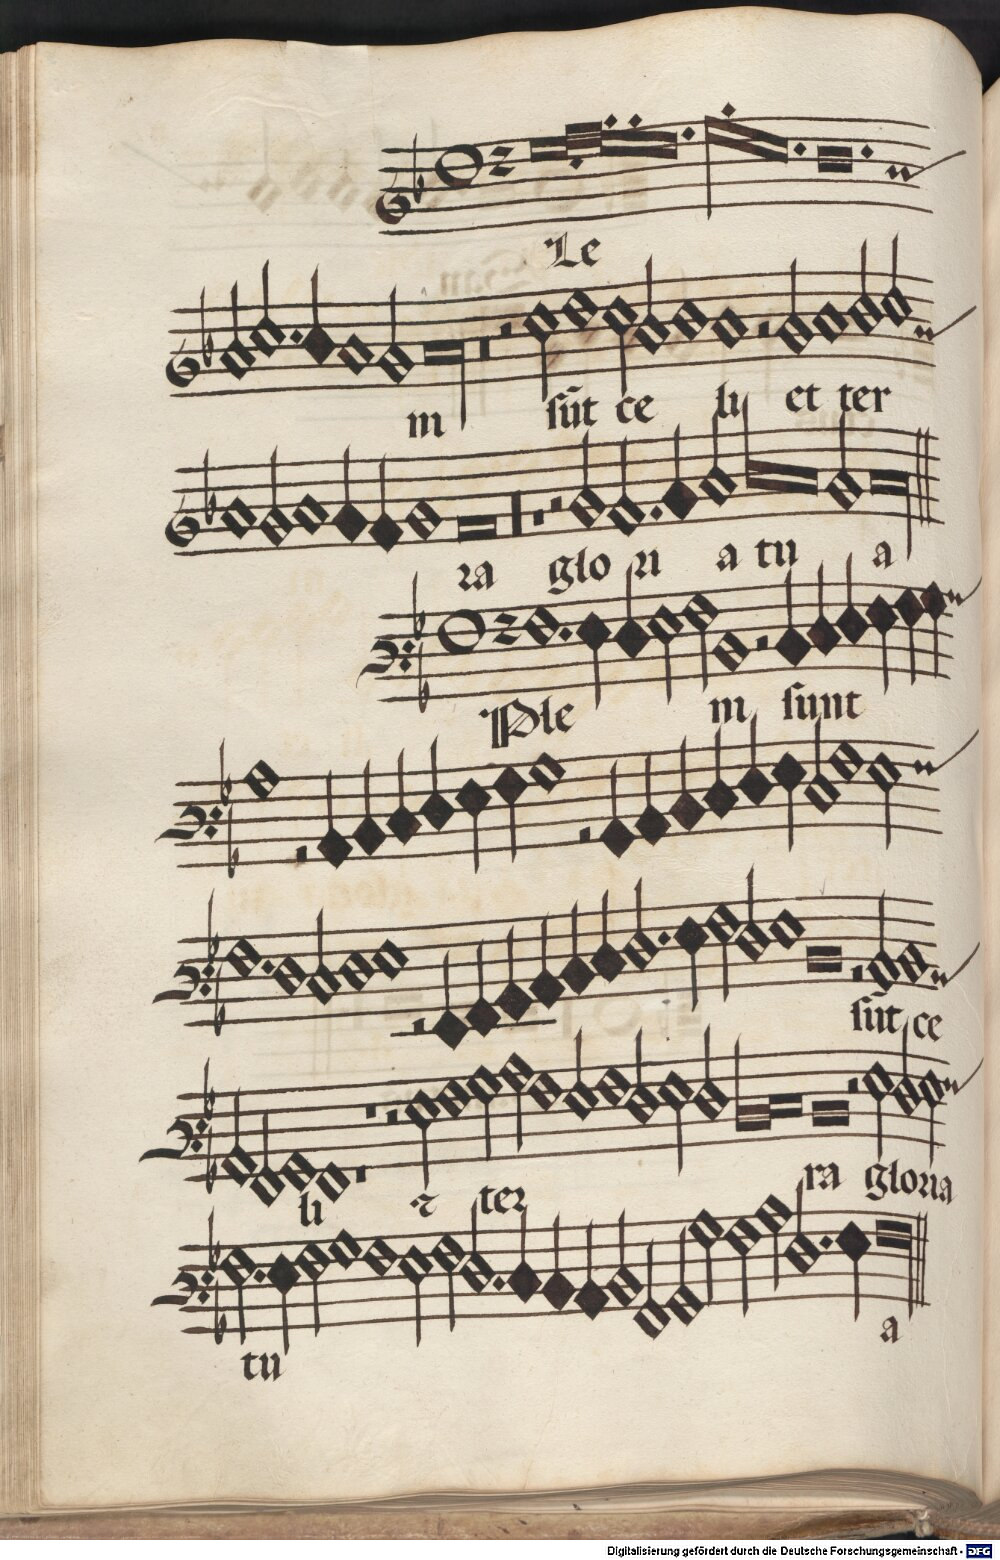 Le
ni sūt ce li et ter
ra glo ri a tu a
Ple ni sunt
sūt ce
li ter ra gloria
tu a
Digitalisierung gefördert durch die Deutsche Forschungsgemeinschaft - DFG